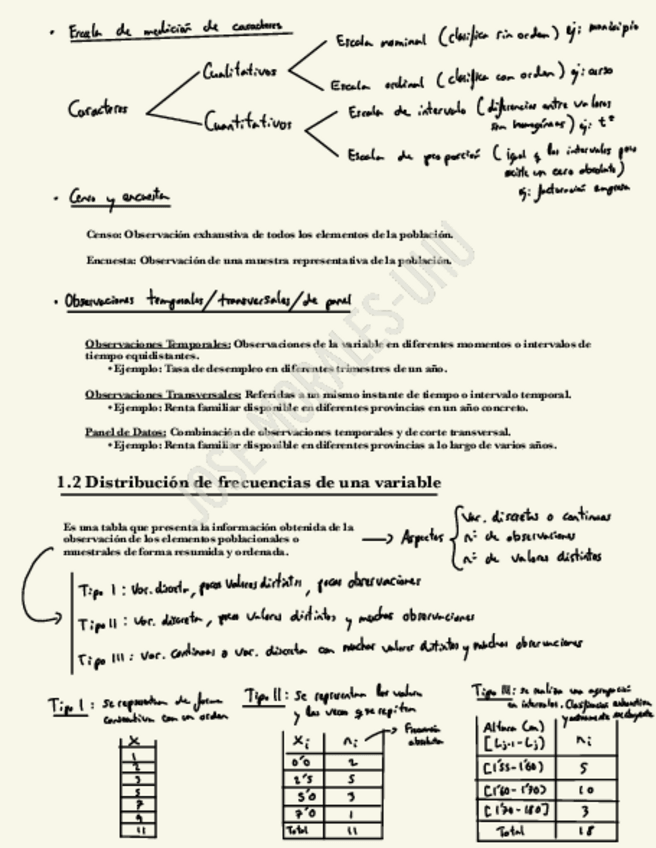 • Escala de medición de caracteres
Caracteres
Cualitativos
Escala nominal (clasifica sin orden) ej: municipio
Escala ordinal (clasifica con orden) ej: curso
Cuantitativos
Escala de intervalo (diferencias entre valores
son homogéneas) ej: tª
Escala de proporción (igual q los intervalos pero
existe un cero absoluto)
ej: facturación empresa
• Censo y encuesta
Censo: Observación exhaustiva de todos los elementos de la población.
Encuesta: Observación de una muestra representativa de la población.
• Observaciones temporales/transversales/de panel
Observaciones Temporales: Observaciones de la variable en diferentes momentos o intervalos de
tiempo equidistantes.
• Ejemplo: Tasa de desempleo en diferentes trimestres de un año.
Observaciones Transversales: Referidas a un mismo instante de tiempo o intervalo temporal.
• Ejemplo: Renta familiar disponible en diferentes provincias en un año concreto.
Panel de Datos: Combinación de observaciones temporales y de corte transversal.
• Ejemplo: Renta familiar disponible en diferentes provincias a lo largo de varios años.
JOSE MORALES-UHU
1.2 Distribución de frecuencias de una variable
Es una tabla que presenta la información obtenida de la
observación de los elementos poblacionales o
muestrales de forma resumida y ordenada.
Aspectos
Var. discretas o continuas
nº de observaciones
nº de valores distintos
Tipo I: Var. discreta, pocos valores distintos, pocas observaciones
Tipo II: Var. discreta, pocos valores distintos y muchas observaciones
Tipo III: Var. continuas o var. discreta con muchos valores distintos y muchas observaciones
Tipo I: se representan de forma
consecutiva con un orden
X
1
2
3
5
7
9
11
Tipo II: Se representan los valores
y las veces q se repiten
Frecuencia
absoluta
Xi ni
0'0 2
2'5 5
5'0 3
7'0 1
Total 11
Tipo III: se realiza una agrupación
en intervalos. Clasificación exhaustiva
y mutuamente excluyente
Altura (m)
[Lj-1 - Lj) ni
[1'55-1'60) 5
[1'60-1'70) 10
[1'70-1'80] 3
Total 18